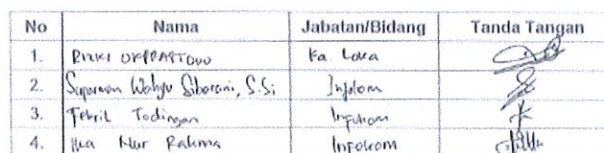 No Nama Jabatan/Bidang Tanda Tangan
1. RIZKI Ka. Loka
2. Suparman Wahyu Siborani, S.Si Infokom
3. Febrit Todingan Infokom
4. Ika Nur Rahma Infokom